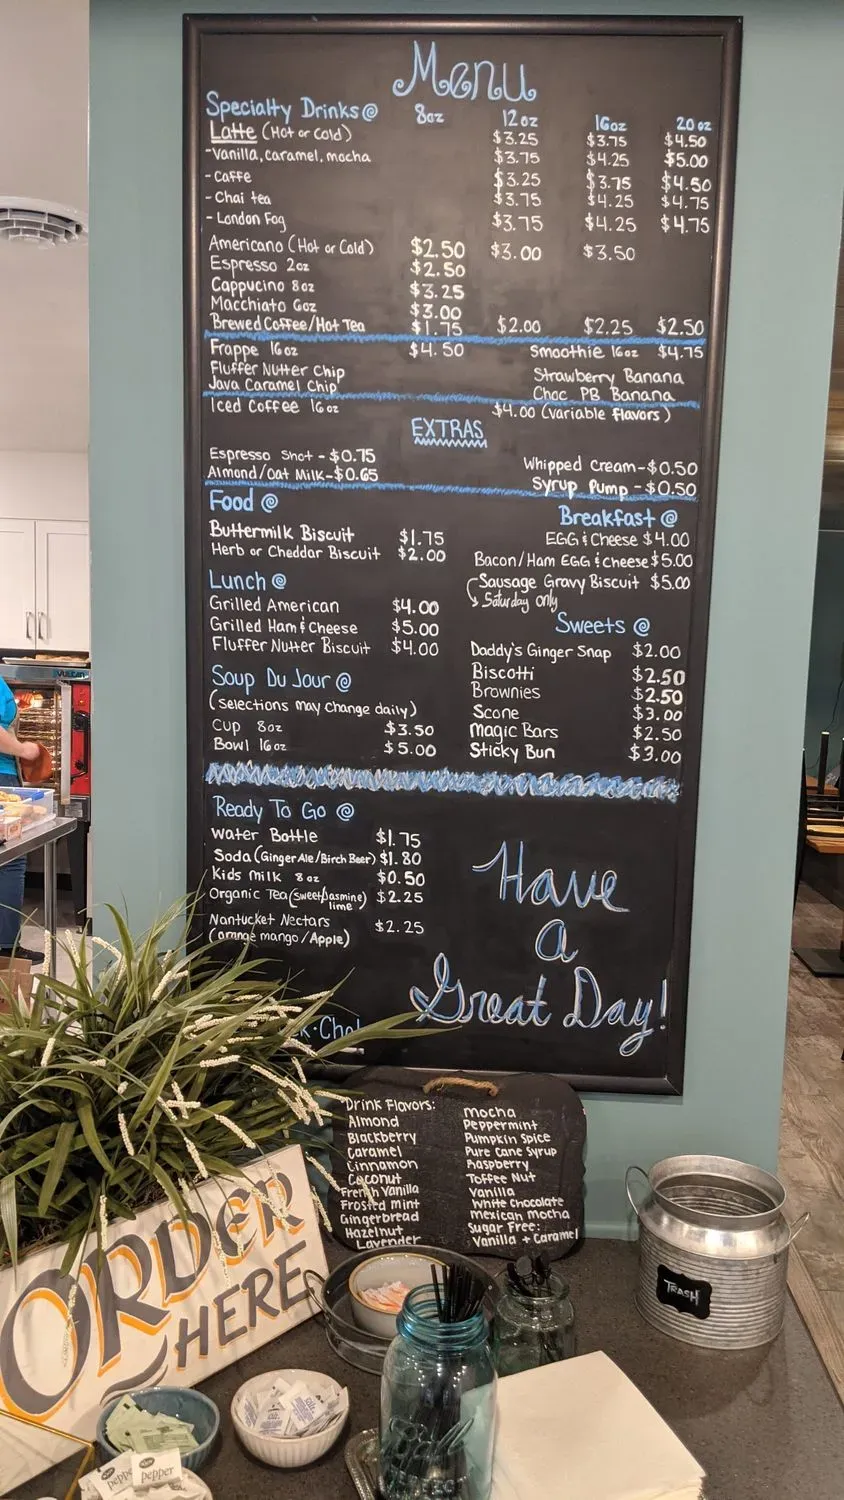 Menu
Specialty Drinks 8oz 12oz 16oz 20oz
Latte (Hot or Cold) $3.25 $3.75 $4.50
-Vanilla, caramel, mocha $3.75 $4.25 $5.00
- Caffe $3.25 $3.75 $4.50
- Chai tea $3.75 $4.25 $4.75
- London Fog $3.75 $4.25 $4.75
Americano (Hot or Cold) $2.50 $3.00 $3.50
Espresso 2oz $2.50
Cappucino 8oz $3.25
Macchiato 6oz $3.00
Brewed Coffee/Hot Tea $1.75 $2.00 $2.25 $2.50
Frappe 16oz $4.50 Smoothie 16oz $4.75
Fluffer Nutter Chip Strawberry Banana
Java Caramel Chip Choc PB Banana
Iced Coffee 16oz $4.00 (variable flavors)
EXTRAS
Espresso Shot - $0.75 Whipped Cream - $0.50
Almond/Oat Milk - $0.65 Syrup Pump - $0.50
Food
Buttermilk Biscuit $1.75
Herb or Cheddar Biscuit $2.00
Breakfast
EGG & Cheese $4.00
Bacon/Ham EGG & Cheese $5.00
Sausage Gravy Biscuit $5.00
Saturday only
Lunch
Grilled American $4.00
Grilled Ham & Cheese $5.00
Fluffer Nutter Biscuit $4.00
Sweets
Daddy's Ginger Snap $2.00
Biscotti $2.50
Brownies $2.50
Scone $3.00
Magic Bars $2.50
Sticky Bun $3.00
Soup Du Jour
(selections may change daily)
Cup 8oz $3.50
Bowl 16oz $5.00
Ready To Go
Water Bottle $1.75
Soda (Ginger Ale/Birch Beer) $1.80
Kids Milk 8oz $0.50
Organic Tea (sweet/Jasmine) $2.25
lime
Nantucket Nectars $2.25
(orange mango/Apple)
Have
a
Great Day!
Drink Flavors:
Almond
Blackberry
Caramel
Cinnamon
Coconut
French Vanilla
Frosted Mint
Gingerbread
Hazelnut
Lavender
Mocha
Peppermint
Pumpkin Spice
Pure Cane Syrup
Raspberry
Toffee Nut
Vanilla
White Chocolate
Mexican Mocha
Sugar Free:
Vanilla + Caramel
ORDER
HERE
TRASH
Ball
pepper
VULCAN